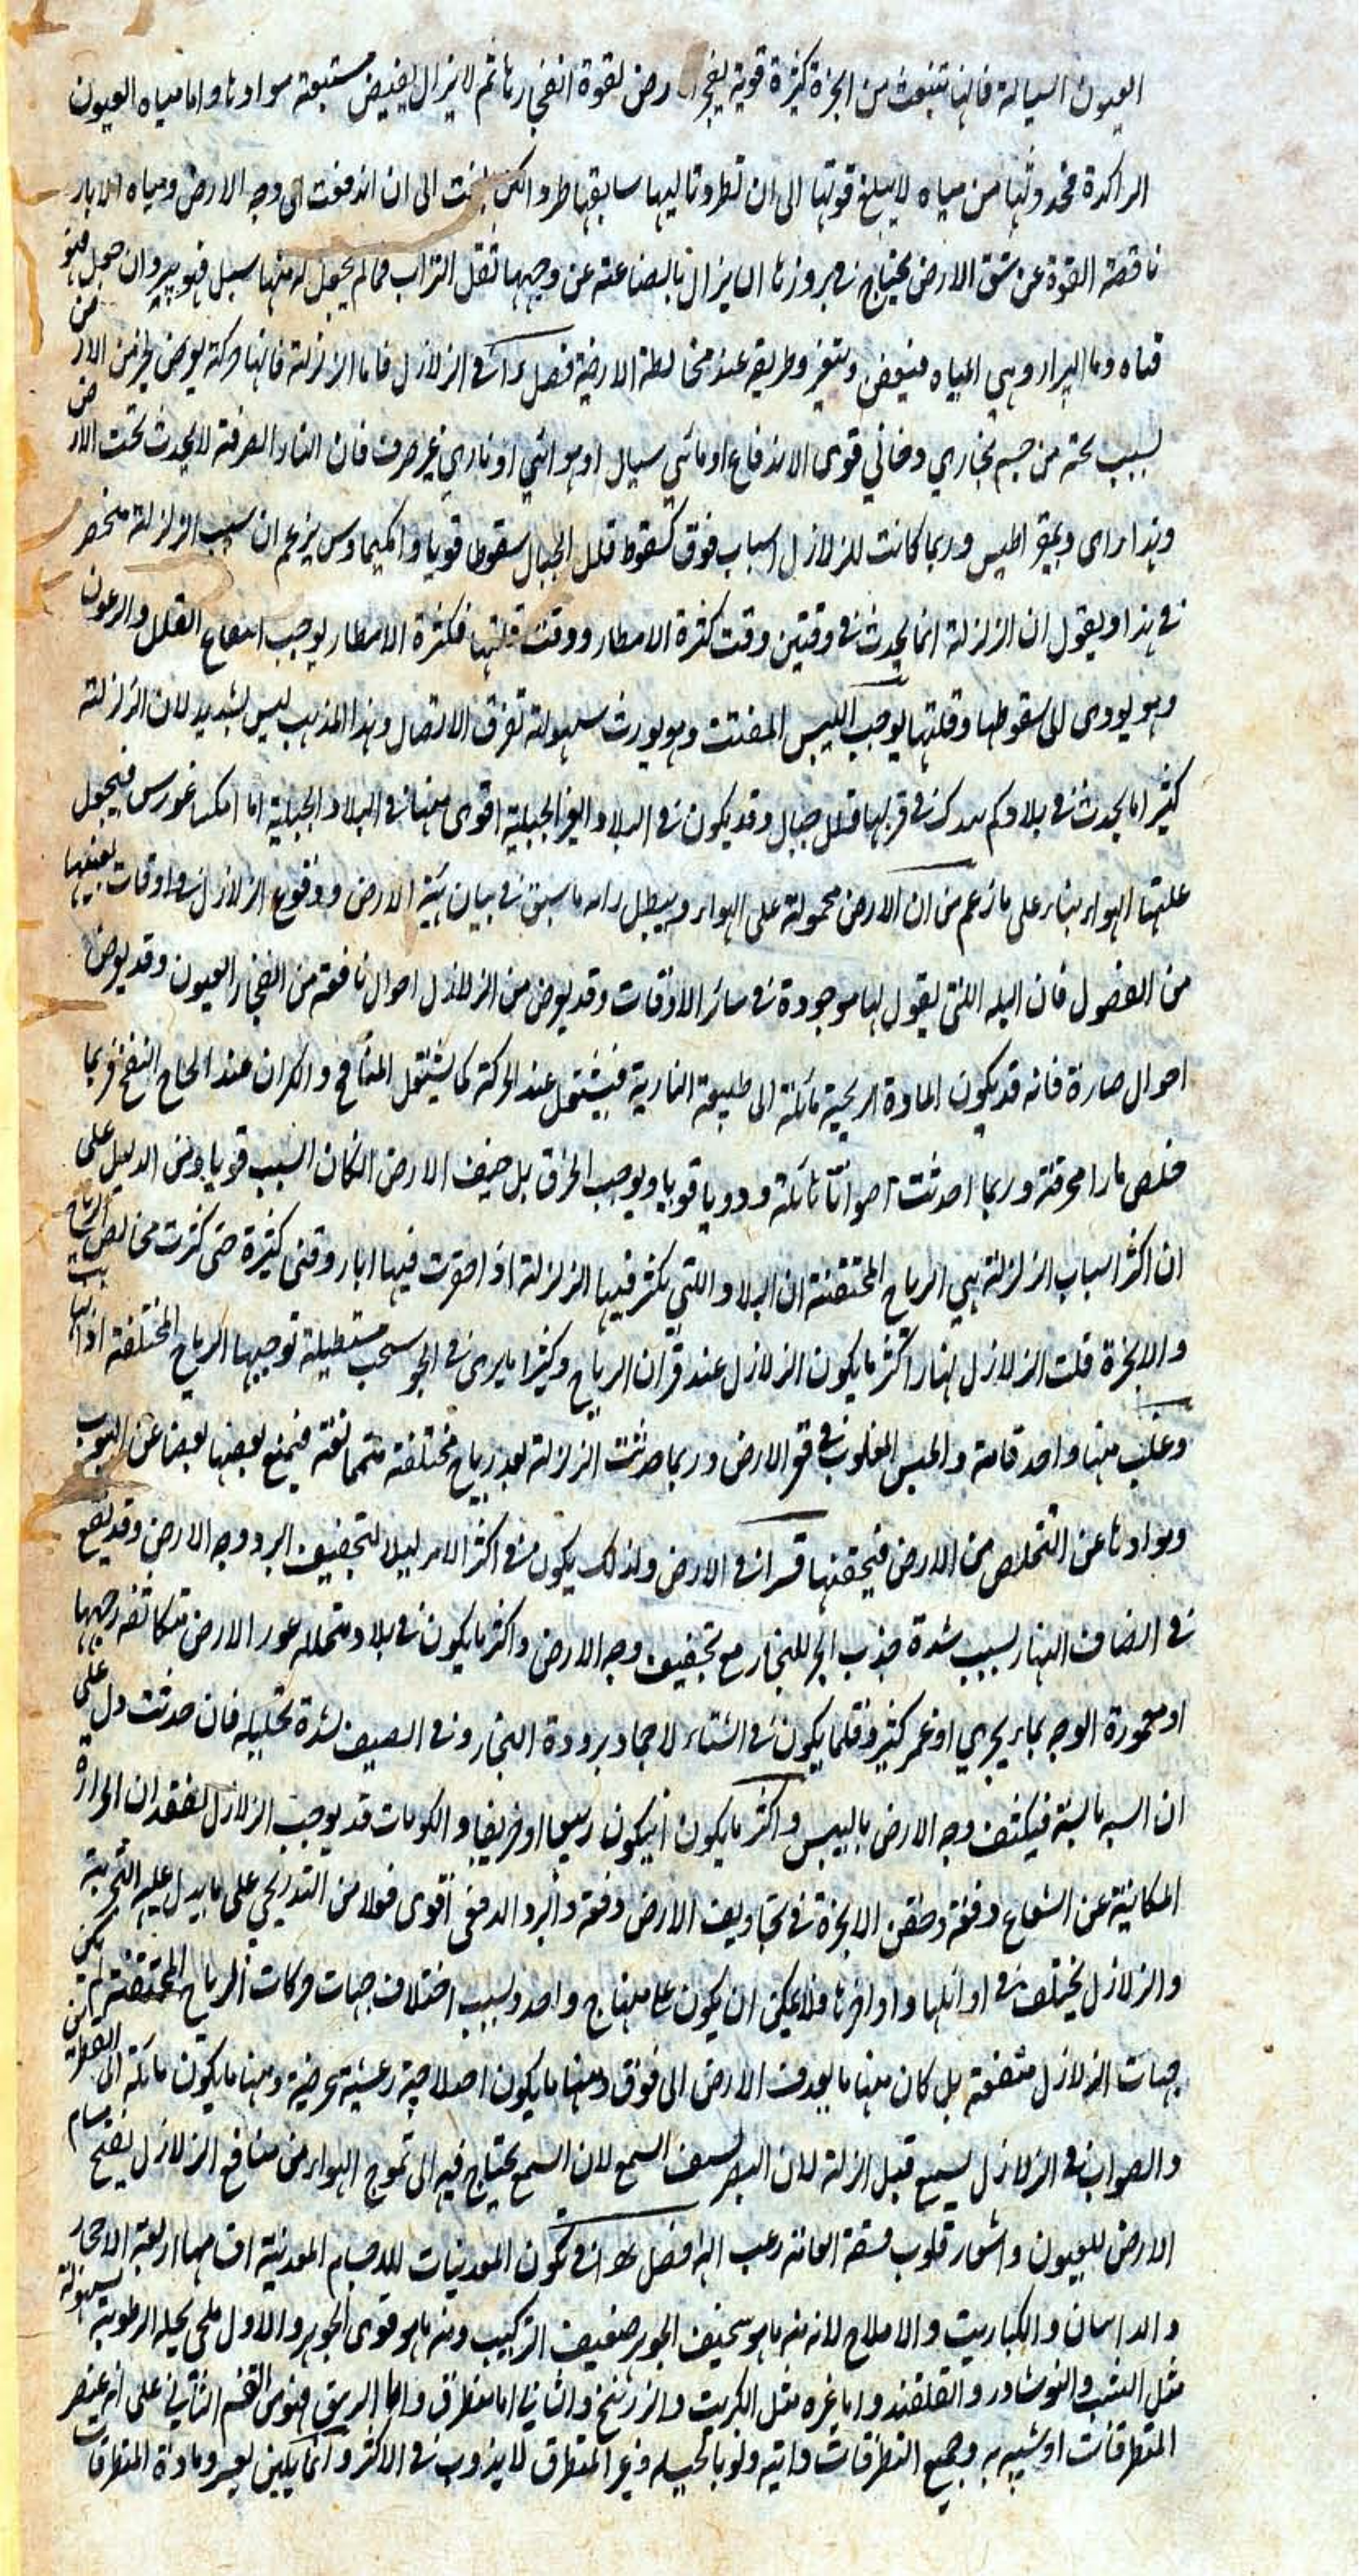 العيون السيالة فانها تنبعث من ابخرة كثيرة قوية يفجر الارض لقوة انفجارها ثم لا يزال يفيض مستتبعة موادها واما مياه العيون
الراكدة فحدوثها من مياه لا يبلغ قوتها الى ان تطرد تاليها سابقها طردا لكن بلغت الى ان اندفعت الى وجه الارض ومياه الابار
ناقصة القوة عن شق الارض يحتاج في بروزها ان يزال بالصناعة عن وجهها ثقل التراب فما لم يجعل له منها سيل فهو بير وان جعل فهو
قناه وما البرارد وهي المياه فيعض وينغير وطريقه عند مخالطة الارضية فصل في الزلازل فاما الزلزلة فانها حركة يعرض لجزء من الارض
بسبب تحته من جسم بخاري دخاني قوى الاندفاع او مائي سيال او هوائي او ناري غير صرف فان النار الصرفة لا يحدث تحت الارض
وهذا راى ديمقراطيس وربما كانت للزلازل اسباب فوق كسقوط قلل الجبال سقوطا قويا وانكيماوس يزعم ان سبب الزلزلة منحصر
في هذا ويقول ان الزلزلة انما يحدث في وقتين وقت كثرة الامطار ووقت قلتها فكثرة الامطار يوجب انتقاع القلل والرعون
وهو يودى الى سقوطها وقلتها يوجب اليبس المفتت وهو يورث سهولة تفرق الاتصال وهذا المذهب ليس بشديد لان الزلزلة
كثيرا ما يحدث في بلاد لم يدرك في قربها قلل جبال وقد يكون في البلاد الغير الجبلية اقوى منها في البلاد الجبلية اما انكساغورس فيجعل
علتها الهواء بناء على ما زعم من ان الارض محمولة على الهواء ويبطل رايه ما سبق في بيان هيئة الارض ووقوع الزلازل في اوقات بعينها
من الفصول فان العلة التي يقول بها موجودة في سائر الاوقات وقد يعرض من الزلازل احوال نافعة من انفجار العيون وقد يعرض
احوال ضارة فانه قد يكون المادة الريحية مائلة الى طبيعة النارية فيشتعل عند الحركة كما يشتعل المنافخ والكيران عند الحاح النفخ فربما
خلص نارا محرقة وربما احدثت اصواتا هائلة ودويا قويا ويوجب الخرق بل خسف الارض ان كان السبب قويا ومن الدليل على
ان اكثر اسباب الزلزلة هي الرياح المحتقنة ان البلاد التي يكثر فيها الزلزلة اذا احفرت فيها ابار وقنى كثيرة حتى كثرت مخالص الرياح
والابخرة قلت الزلازل بها واكثر ما يكون الزلازل عند فقدان الرياح وكثيرا ما يرى في الجو سحب مستطيلة توجبها الرياح المختلفة اذا هبت
وغلب منها واحد قامة والحبس المغلوب في قعر الارض وربما حدثت الزلزلة بعد رياح مختلفة متمانعة فيمنع بعضها بعضا عن الهبوب
وموادها عن التخلص من الارض فيحقنها قسرا في الارض ولذلك يكون في اكثر الامر ليلا لتخفيف البرد وجه الارض وقد يقع
في انصاف النهار بسبب شدة جذب الحر للبخار مع تجفيف وجه الارض واكثر ما يكون في بلاد متخلخلة غور الارض متكاثفة وجهها
او مغمورة الوجه بماء يجري او غمر كثير وقلما يكون في الشتاء لاجماد برودة البخار وفي الصيف لشدة تحليله فان حدثت دل على
ان السنة يابسة فيكثف وجه الارض باليبس واكثر ما يكون ان يكون ربيعا او خريفا والكسوفات قد يوجب الزلازل لفقدان الحرارة
المكانية عن الشعاع دفعة وحقن الابخرة في تجاويف الارض دفعة والبرد الدفعى اقوى فعلا من التدريجي على ما يدل عليه التجربة
والزلازل يختلف في اوائلها واواخرها فلا يمكن ان يكون على منهاج واحد وبسبب اختلاف جهات حركات الرياح المحتقنة لم يكن
جهات الزلازل متفقة بل كان منها ما يقذف الارض الى فوق ومنها ما يكون اختلاجية رعشية عرضية ومنها ما يكون مائلة الى القطرين
والصواب في الزلازل يسمع قبل الزلة لان البصر يسبق السمع لان السمع يحتاج فيه الى تموج الهواء من منافع الزلازل يفتح مسام
الارض للعيون واشعار قلوب فسقة العامة رعب الله فصل في تكون المعدنيات للاجسام المعدنية اقسامها اربعة الاحجار
والذائبات والكباريت والاملاح لانه منه ما هو سخيف الجوهر ضعيف التركيب ومنه ما هو قوى الجوهر والاول ملحى يحله الرطوبة بسهولة
مثل الشب والنوشادر والقلقند واما غيره مثل الكبريت والزرنيخ والثاني اما متطرق واما الزيبق فهو من القسم الثاني على انه عنصر
المتطرقات او شبيه به وجميع المتطرقات ذائبة ولو بالحيلة وغير المتطرق لا يذوب في الاكثر وانما يلين بعسر ومادة المتطرقات